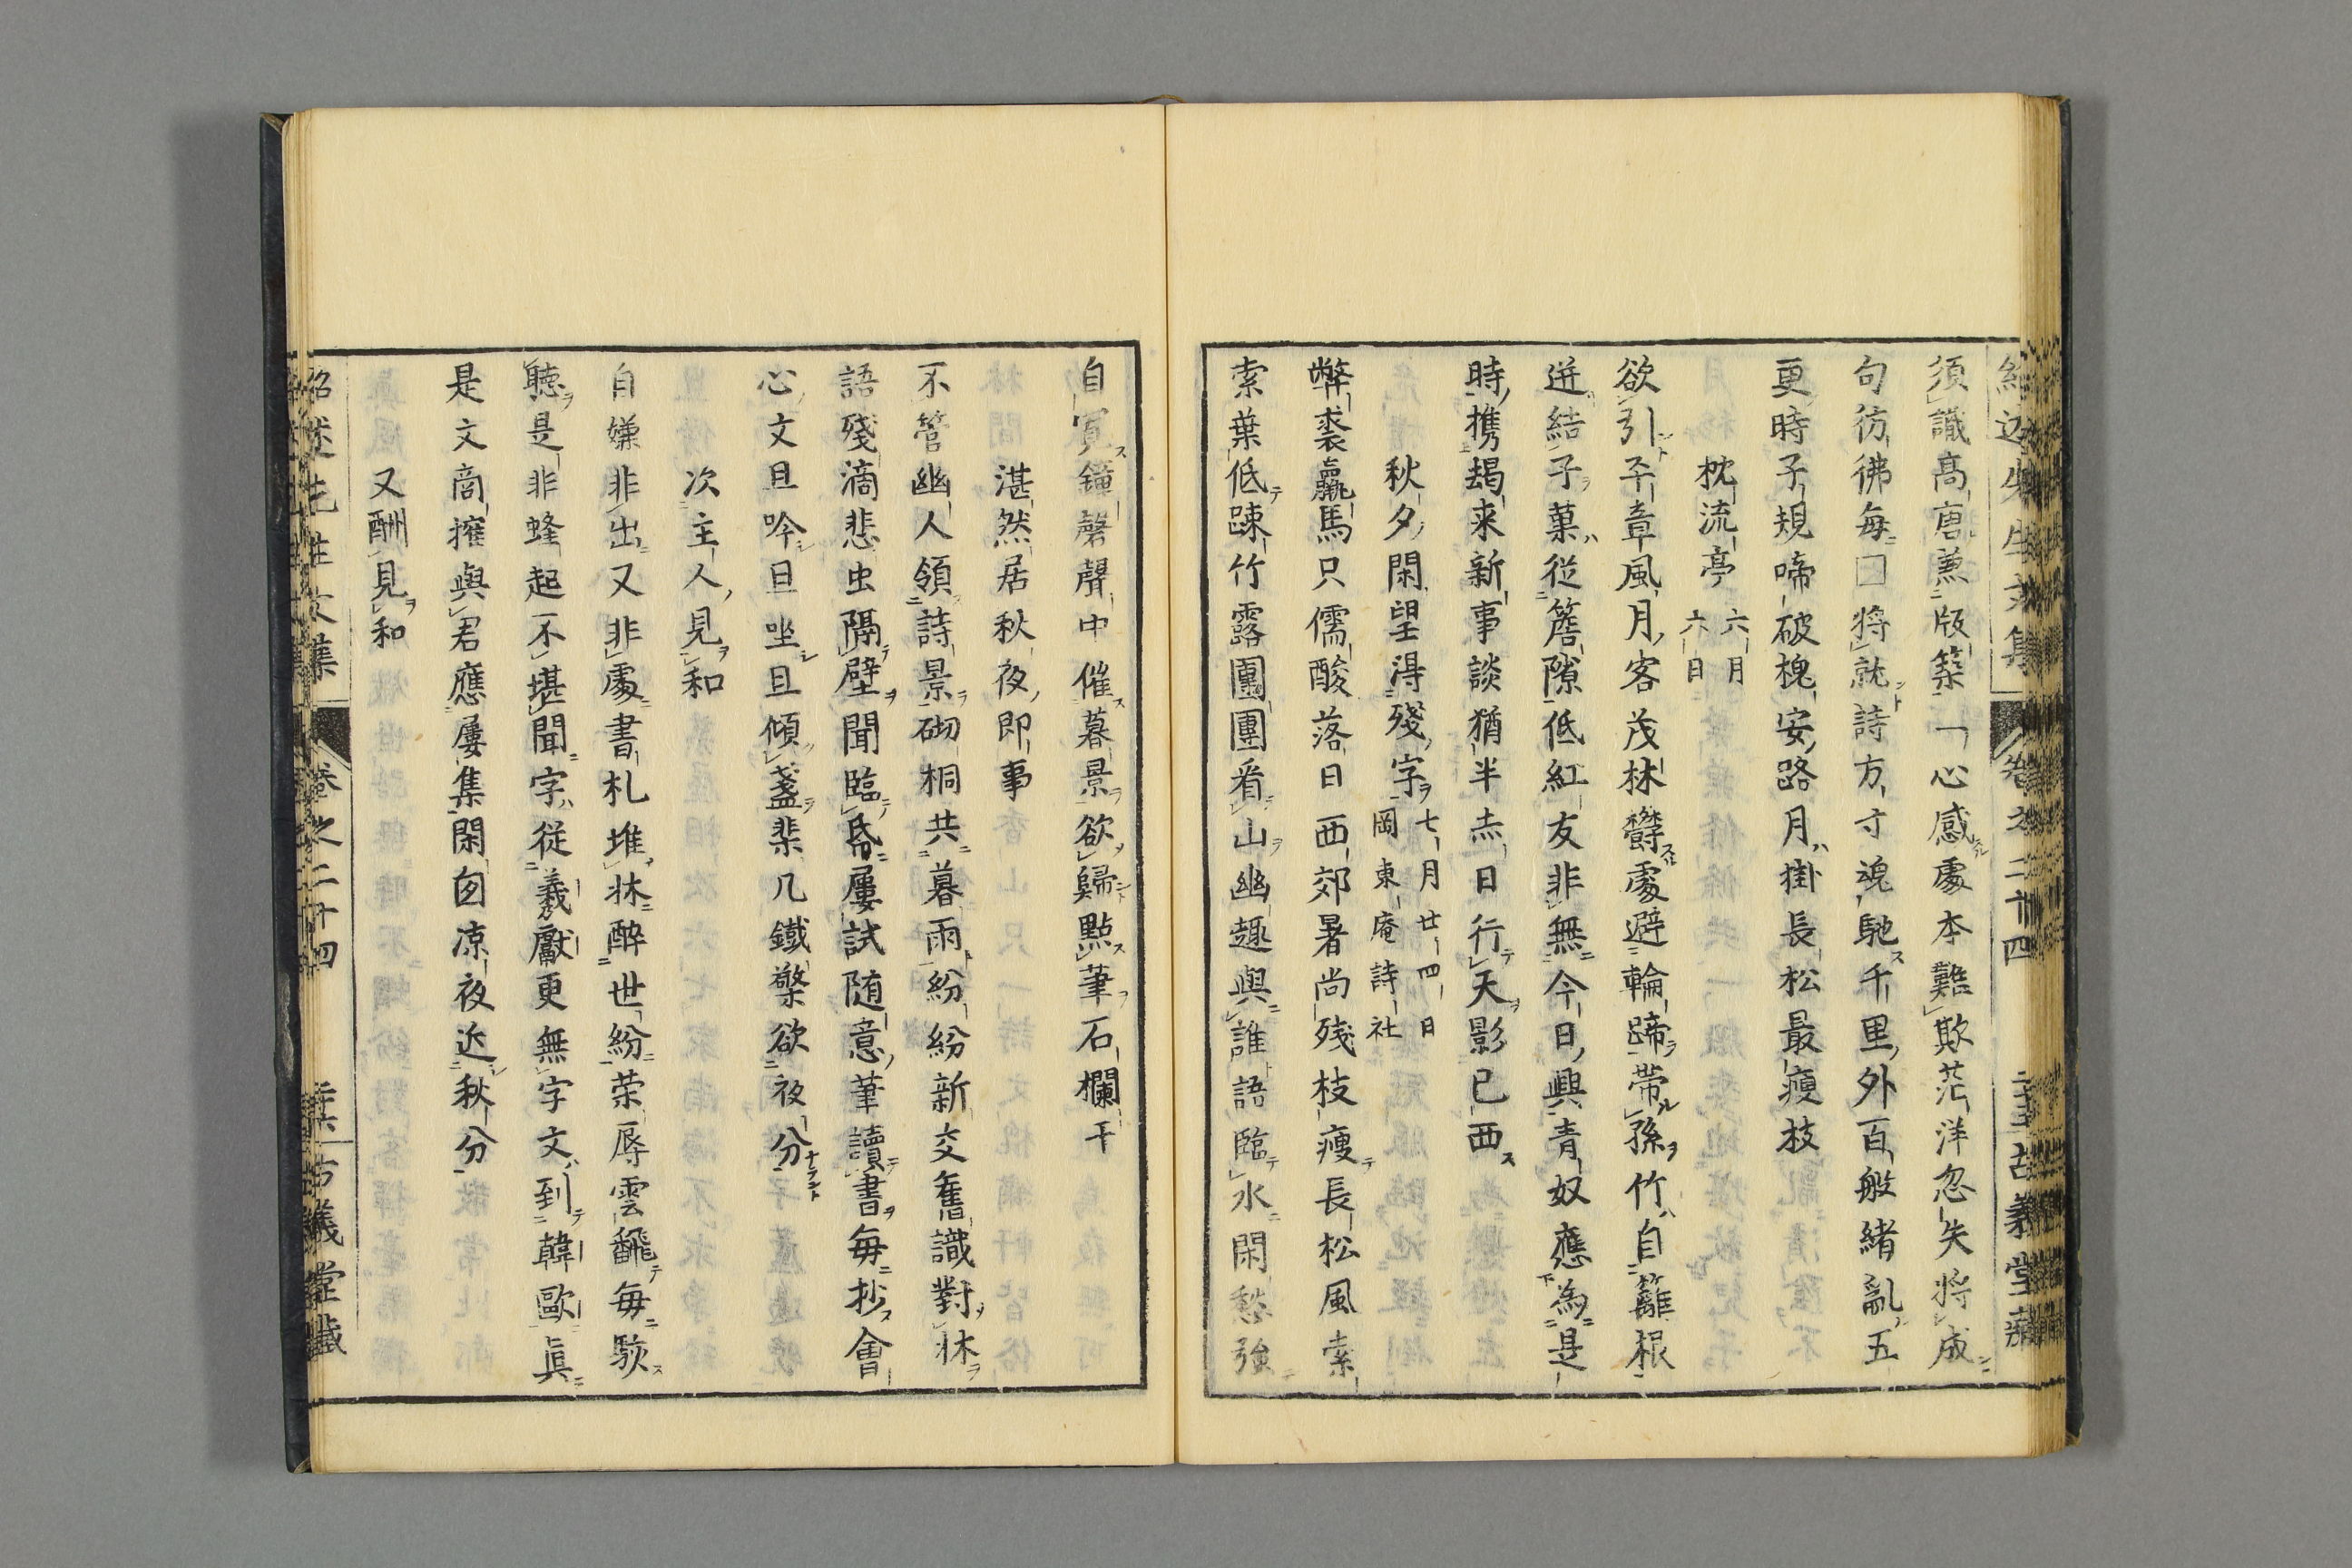 紹述先生文集 卷之二十四 古義堂藏
須識高唐兼版築一心感處本難欺茫洋忽失將成
句彷彿每□將就詩方寸魂馳千里外百般緒亂五
更時子規啼破槐安路月掛長松最瘦枝
枕流亭 六月六日
欲引平章風月客茂林欝處避輪蹄帶孫竹自籬根
迸結子菓從簷隙低紅友非無今日興青奴應為是
時携朅来新事談猶半赤日行天影已西
秋夕閑望得殘字 七月廿四日岡東庵詩社
弊裘羸馬只儒酸落日西郊暑尚残枝瘦長松風索
索葉低踈竹露團團看山幽趣與誰語臨水閑愁強
自寬鐘磬聲中催暮景欲歸點筆石欄干
湛然居秋夜即事
不管幽人領詩景砌桐共暮雨紛紛新交舊識對牀
語殘滴悲虫隔壁聞臨帋屢試随意筆讀書每抄會
心文且吟且坐且傾盞棐几鐵檠欲夜分
次主人見和
自嫌非出又非處書札堆牀酔世紛荣辱雲飜每駭
聽是非蜂起不堪聞字從羲獻更無字文到韓歐眞
是文商搉與君應屢集閑囱凉夜近秋分
又酬見和
紹述先生文集 卷之二十四 古義堂藏